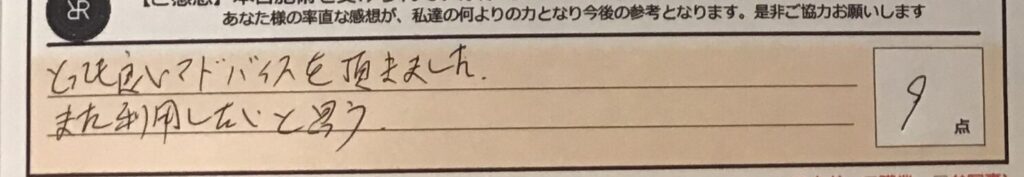 あなた様の率直な感想が、私達の何よりの力となり今後の参考となります。是非ご協力お願いします
とっても良いアドバイスを頂きました.
また利用したいと思う.
9
点